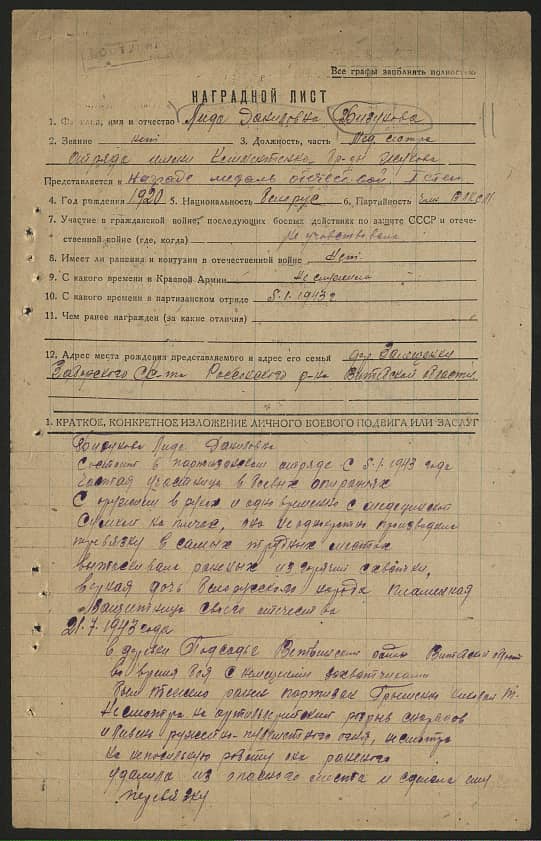 Все графы заполнять полностью
НАГРАДНОЙ ЛИСТ
1. Фамилия, имя и отчество Лида Даниловна
2. Звание нет 3. Должность, часть Мед. сестра
отряда имени
Представляется к награде медаль отечествен. II степ
4. Год рождения 1920 5. Национальность Беларус 6. Партийность член ВЛКСМ
7. Участие в гражданской войне, последующих боевых действиях по защите СССР и отече-
ственной войне (где, когда) не участвовала
8. Имеет ли ранения и контузии в отечественной войне Нет
9. С какого времени в Красной Армии Не служила
10. С какого времени в партизанском отряде 5.1.1943 г
11. Чем ранее награжден (за какие отличия)
12. Адрес места рождения представляемого и адрес его семьи дер.
с/с-та р-на Витебской области
1. КРАТКОЕ, КОНКРЕТНОЕ ИЗЛОЖЕНИЕ ЛИЧНОГО БОЕВОГО ПОДВИГА ИЛИ ЗАСЛУГ
Лида Даниловна
Состоит в партизанском отряде с 5.1.1943 года
участница в боевых
С оружием в руках и одно временно с медецинской
сумкой на плечах, она неоднократно производила
перевязку в самых трудных местах
вытаскивала раненых из горячих схваток,
верная дочь Белорусского народа пламенная
Защитница своего отечества
21.7.1943 года
в деревни Подсадье
во время боя с немецкими захватчиками
был тяжело ранен партизан
Несмотря на артилерийский разрыв снарядов
и ливень ружейно-пулеметного огня, несмотря
на непосильную работу она раненого
удалила из опасного места и сделала ему
перевязку